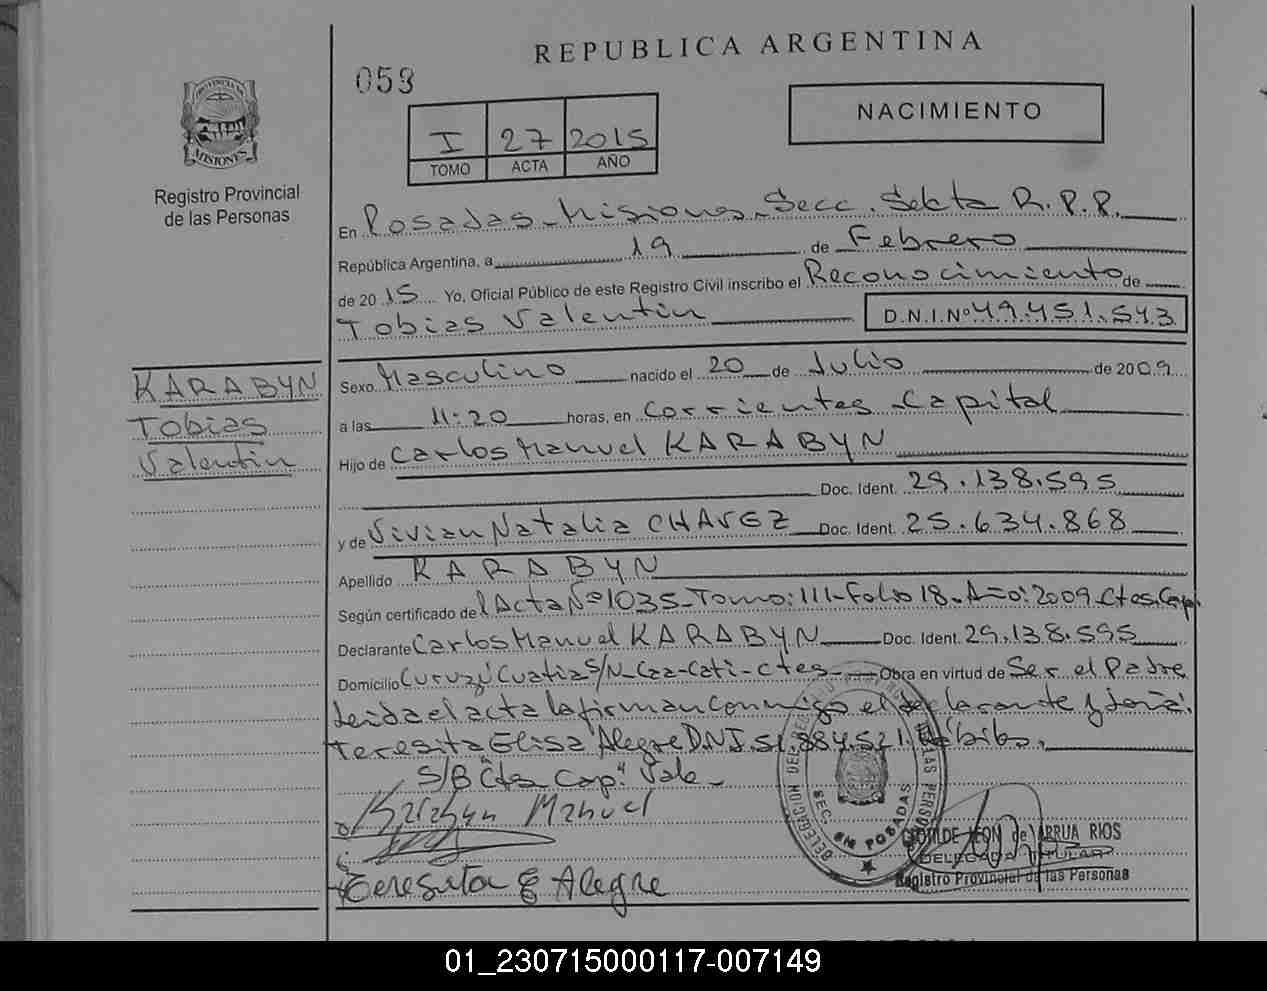 REPUBLICA ARGENTINA
059
NACIMIENTO
I 27 2015
TOMO ACTA AÑO
PROVINCIA DE
MISIONES
Registro Provincial
de las Personas
En Posadas-Misiones-Secc. Sekta R.P.P.
República Argentina, a 19 de Febrero
de 2015 Yo, Oficial Público de este Registro Civil inscribo el Reconocimiento de
Tobias Valentin D.N.I.Nº 49.451.543
KARABYN
Tobias
Valentin
Sexo Masculino nacido el 20 de Julio de 2009
a las 11:20 horas, en Corrientes-Capital
Hijo de Carlos Manuel KARABYN
Doc. Ident. 29.138.595
y de Vivian Natalia CHAVEZ Doc. Ident. 25.634.868
Apellido KARABYN
Según certificado del Acta Nº 1035-Tomo: III-Folio 18-Año: 2009 Ctes. Cap.
Declarante Carlos Manuel KARABYN Doc. Ident. 29.138.595
Domicilio Curuzú Cuatia S/N-Caa-Cati-Ctes- Obra en virtud de Ser el Padre
Leida el acta la firman conmigo el declarante y
Teresita Elisa Alegre D.N.I.
S/B "Ctes Cap." Vale-
Karabyn Manuel
Teresita E Alegre
DELEGACION DEL REGISTRO LAS PERSONAS
SEC. POSADAS
LEON de ARRUA RIOS
DELEGADA TITULAR
Registro Provincial de las Personas
01_230715000117-007149